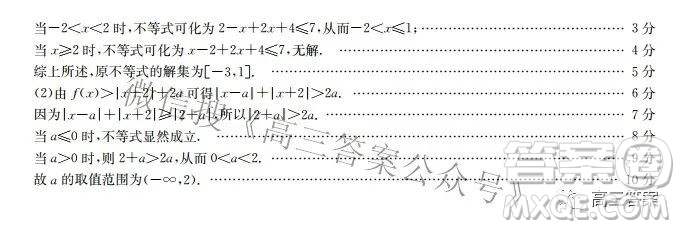 当-2<x<2时,不等式可化为2-x+2x+4≤7,从而-2<x≤1; …… 3分
当x≥2时,不等式可化为x-2+2x+4≤7,无解. …… 4分
综上所述,原不等式的解集为[-3,1]. …… 5分
(2)由f(x)>|x+2|+2a可得|x-a|+|x+2|>2a. …… 6分
因为|x-a|+|x+2|≥|2+a|,所以|2+a|>2a. …… 7分
当a≤0时,不等式显然成立. …… 8分
当a>0时,则2+a>2a,从而0<a<2. …… 9分
故a的取值范围为(-∞,2). …… 10分
微信搜《高三答案公众号》
高三答案
答案圈
MXQE.COM